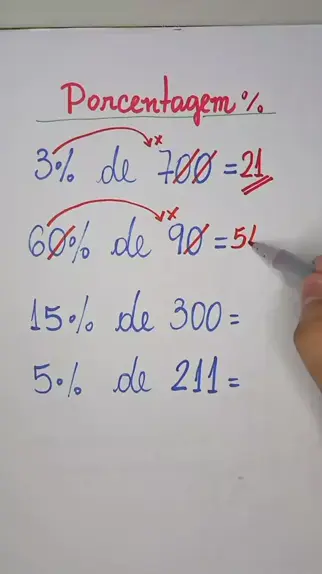 Porcentagem %
3% de 700 = 21
60% de 90 = 54
15% de 300 =
5% de 211 =